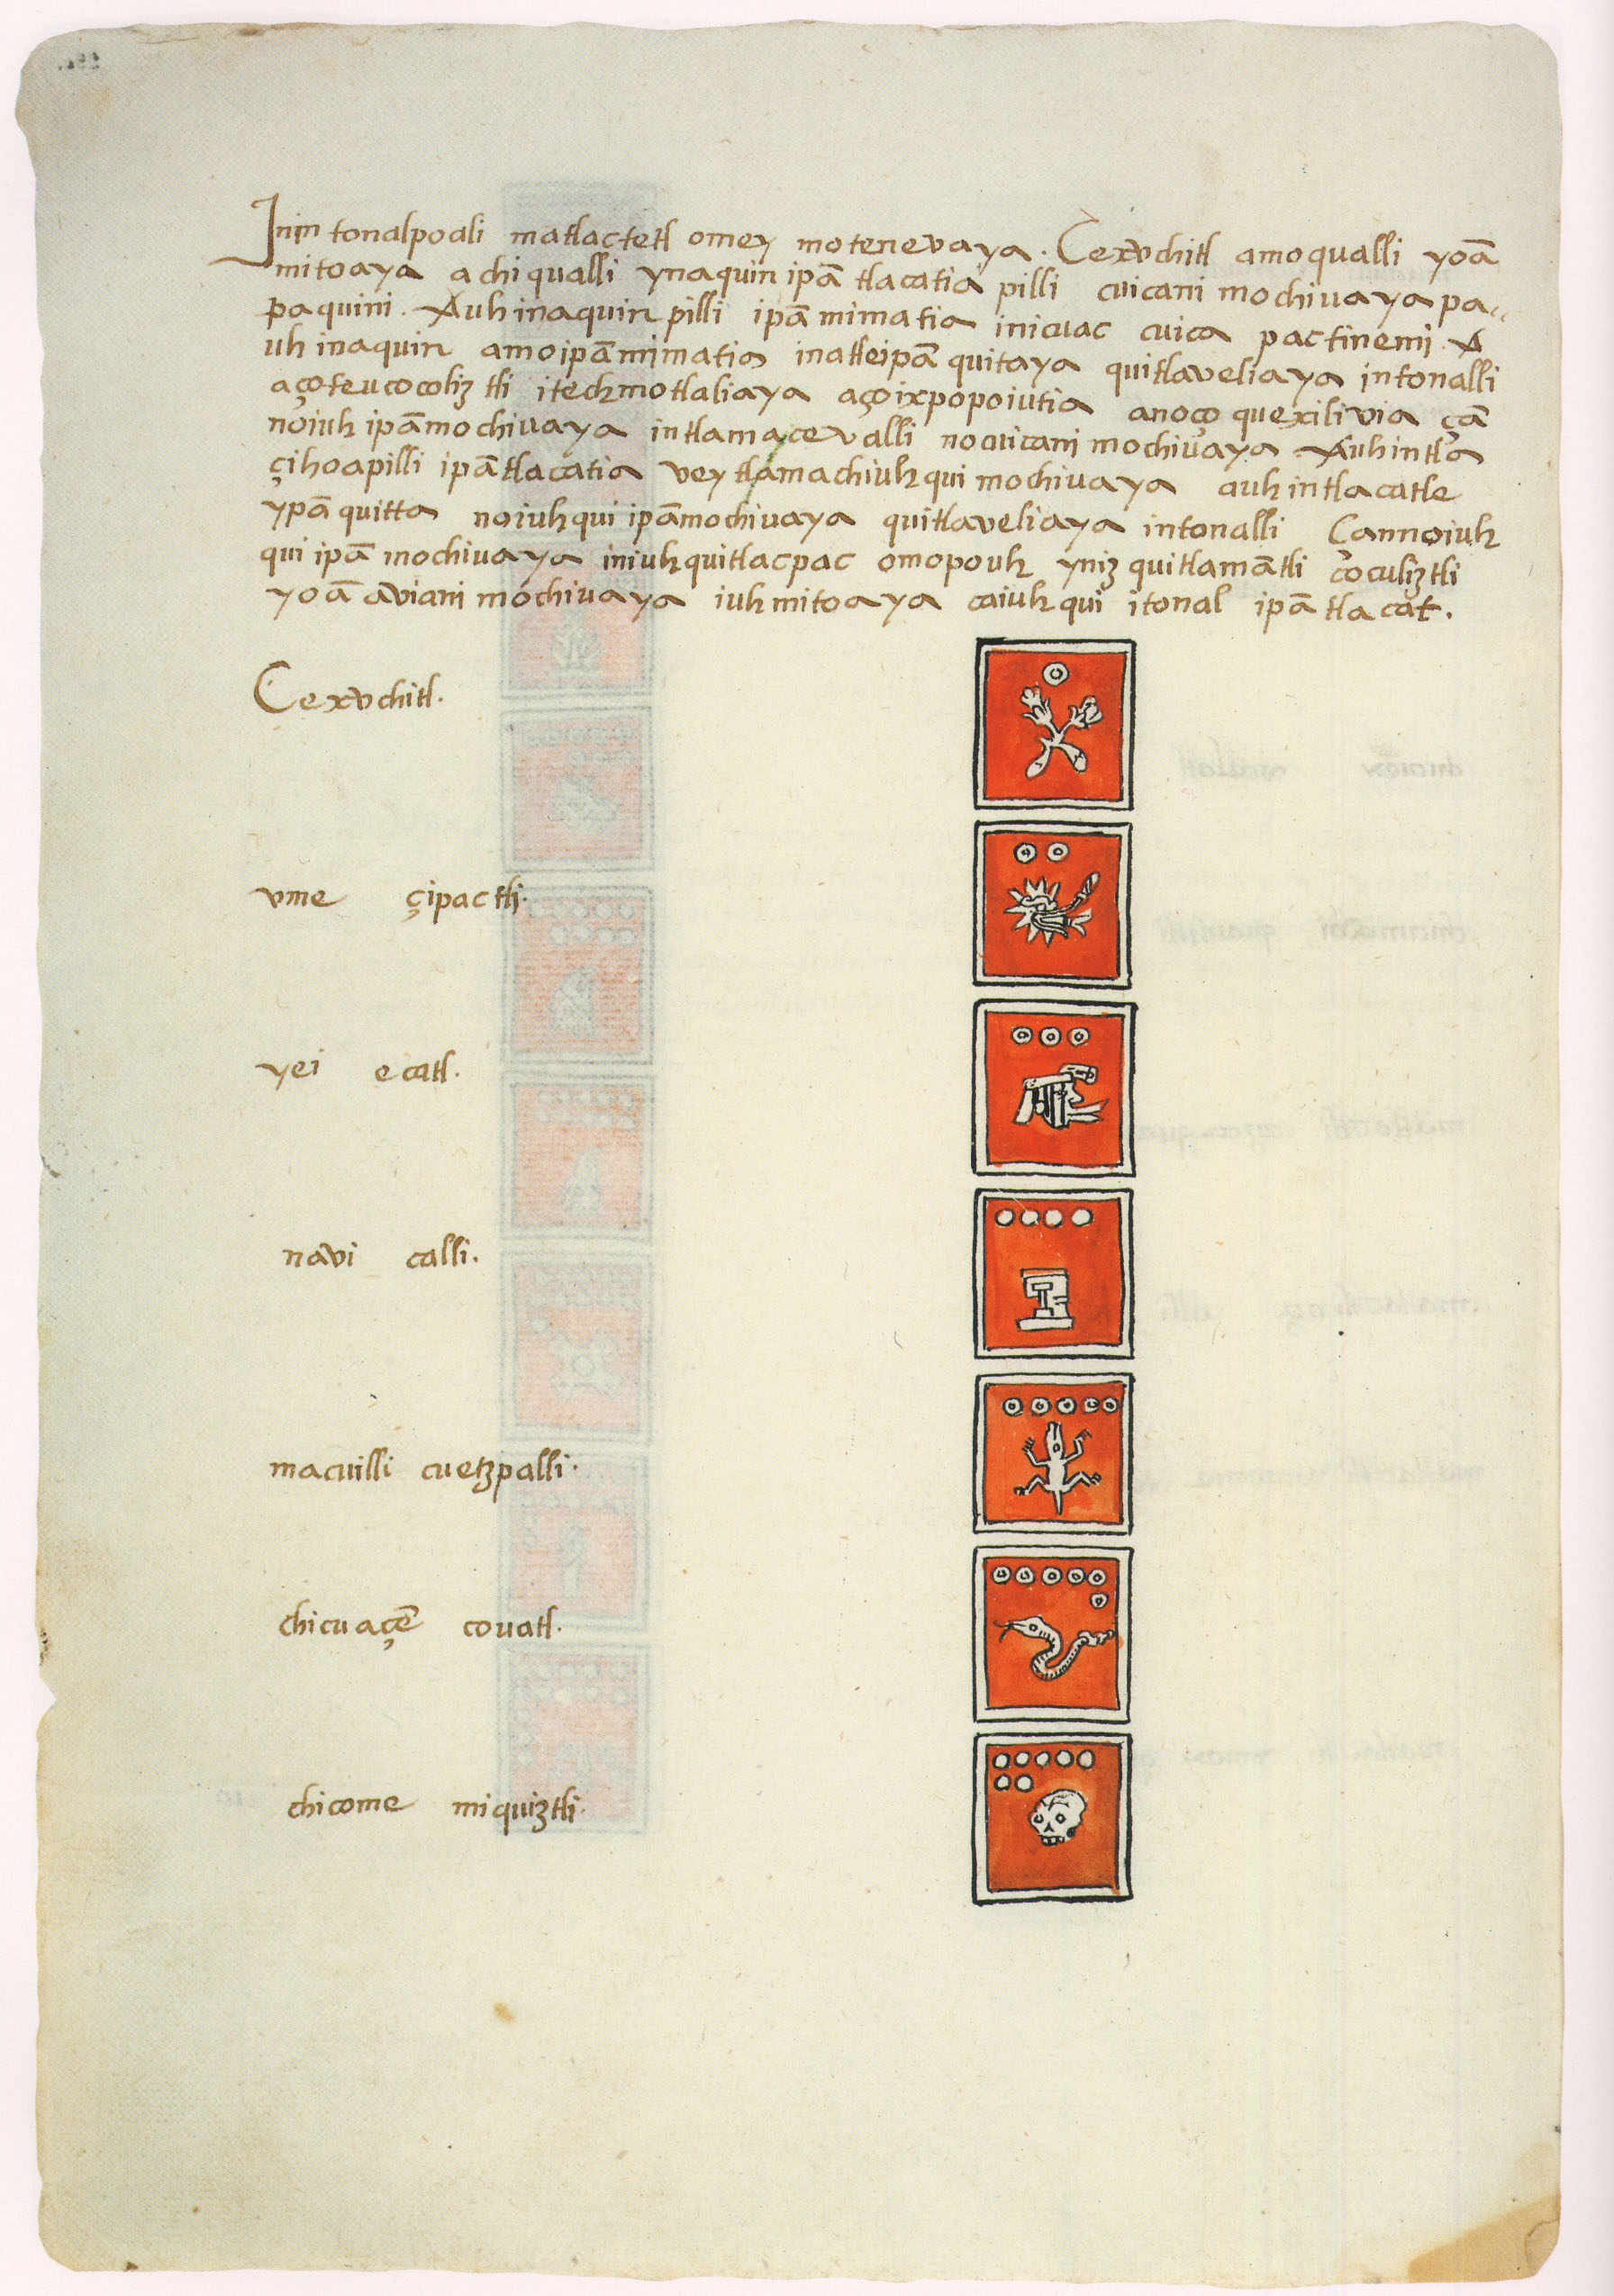 Jnin tonalpoali matlactetl omey motenevaya. Cexvchitl amoqualli yoā
mitoaya achi qualli ynaquin ipā tlacatia pilli cuicani mochiuaya pa
paquini. Auh inaquin pilli ipā mimatia inicuac cuica pactinemi. A
uh inaquin amo ipā mimatia inatleipā quitaya quitlaveliaya intonalli
açoteucocoliztli itechmotlaliaya açoixpopoiutia anoço quexilivia çā
noiuh ipāmochiuaya intlamacevalli nocuicani mochiuaya Auhintla
çihoapilli ipātlacatia vey tlamachiuhqui mochiuaya auh intlacatle
ypā quitta noiuhqui ipāmochiuaya quitlaveliaya intonalli Cannoiuh
qui ipā mochiuaya iniuhquitlacpac omopouh yniz quitlamātli cocoliztli
yoā aviani mochiuaya iuh mitoaya caiuhqui itonal ipā tlacat.
Cexvchitl.
vme çipactli.
yei ecatl.
navi calli.
macuilli cuetzpalli.
chicuaçē couatl.
chicome miquiztli.